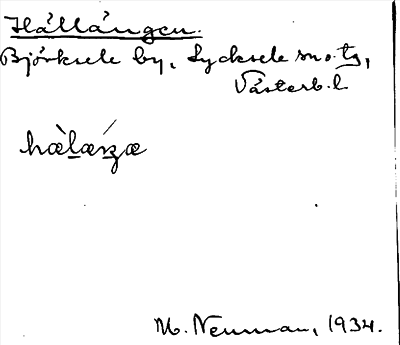 Hållången.
Björksele by, Lycksele sn o. tg,
Västerb. l
M. Neuman, 1934.